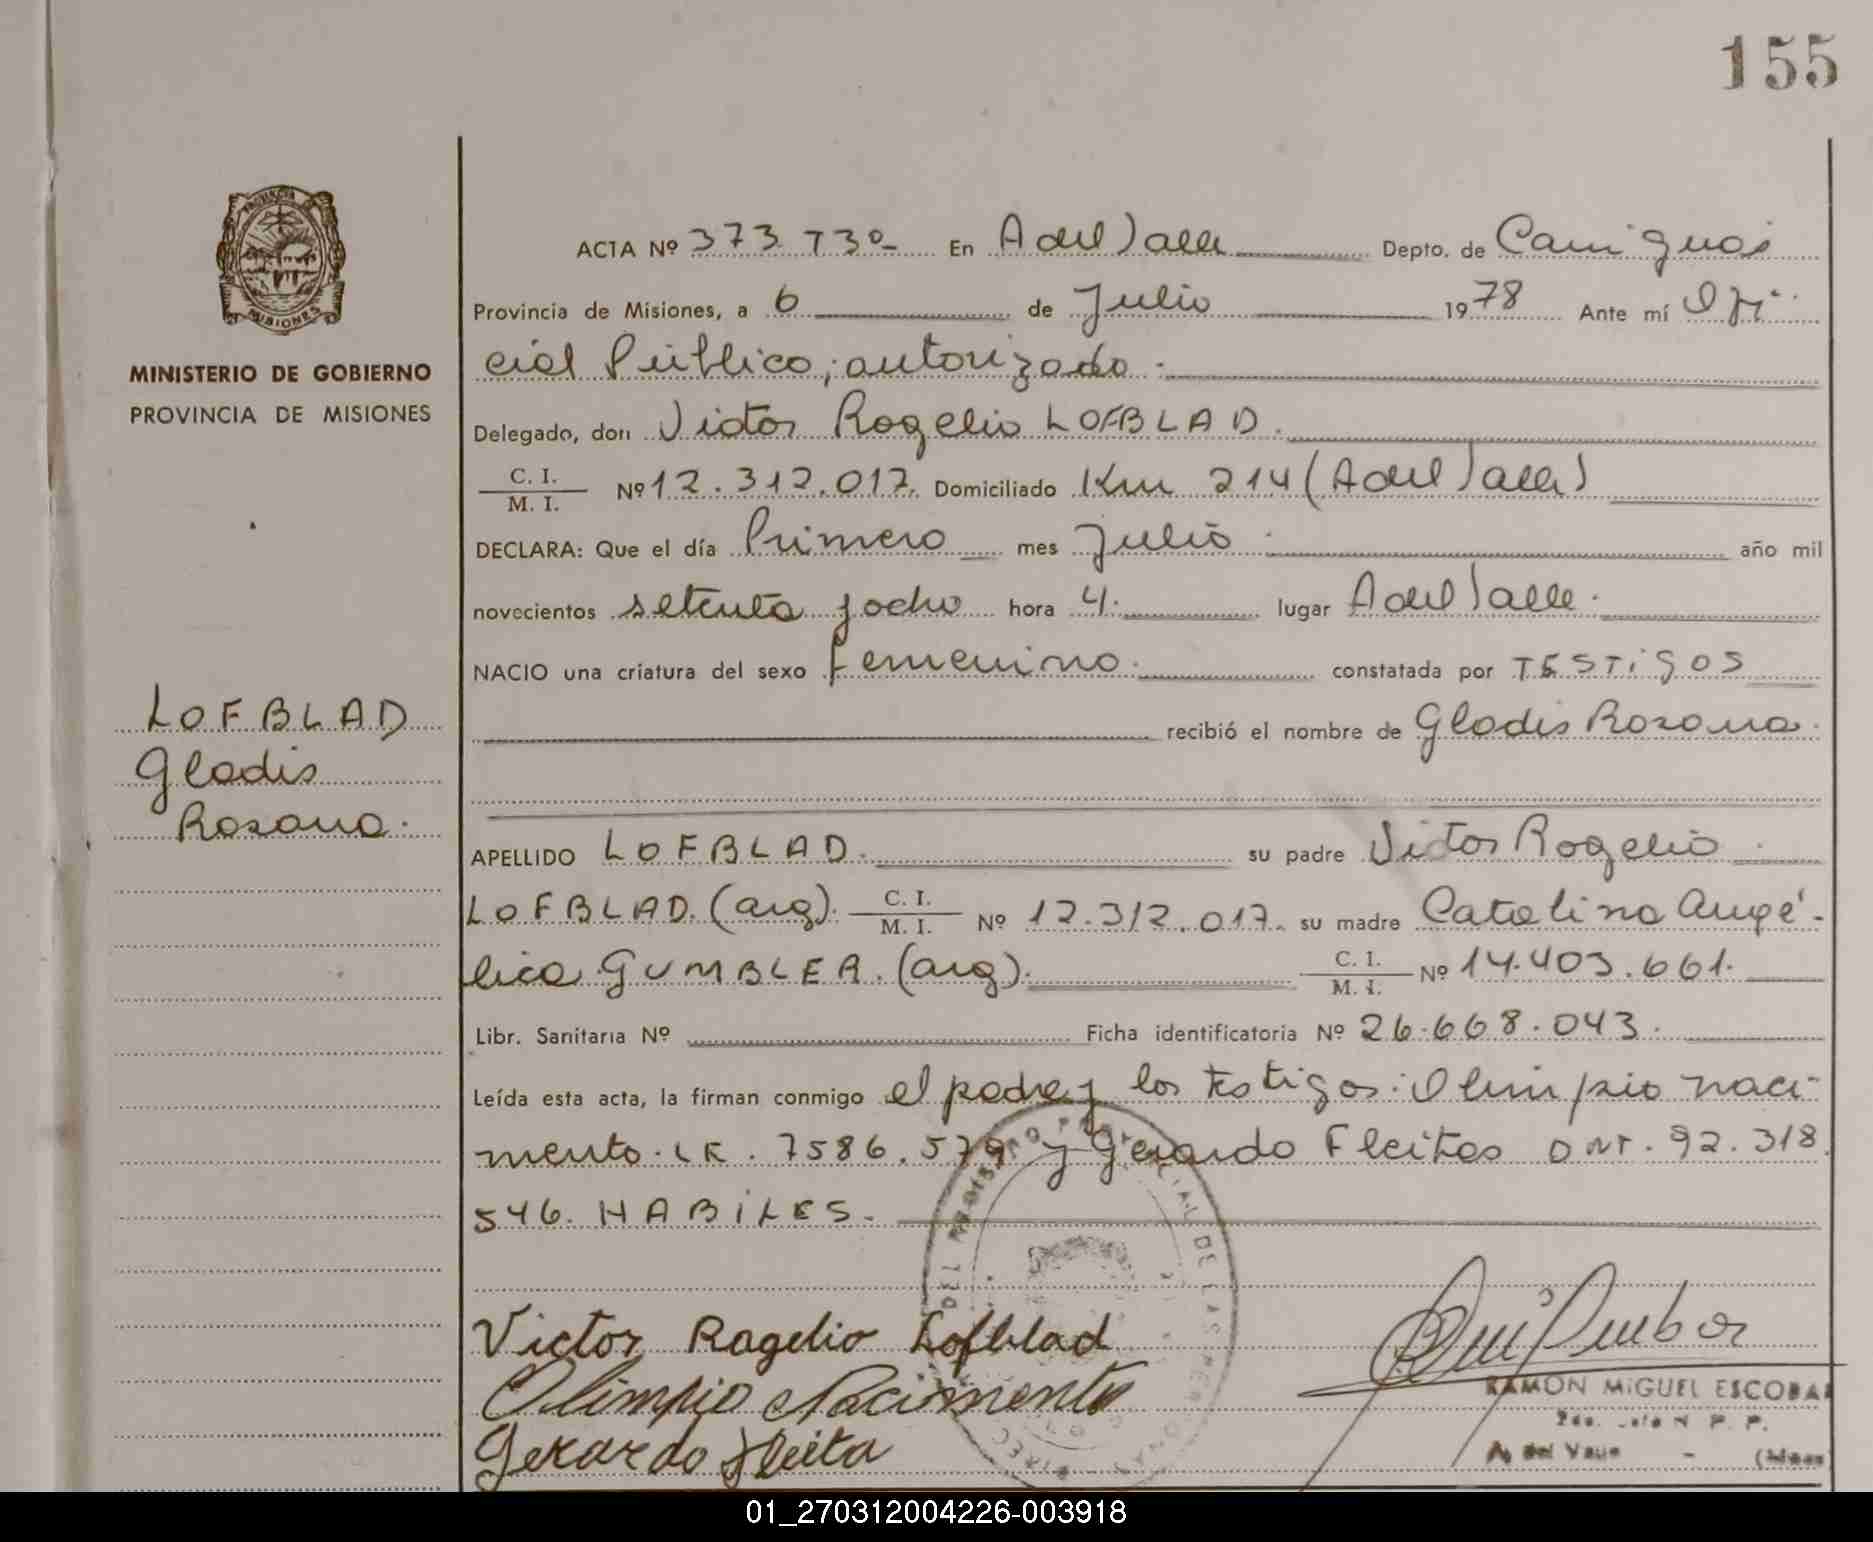 155
PROVINCIA
MISIONES
MINISTERIO DE GOBIERNO
PROVINCIA DE MISIONES
LOFBLAD
Gladis
Rosana.
ACTA Nº 373 T3º- En A del Valle Depto. de Cainguás
Provincia de Misiones, a 6 de Julio 1978 Ante mí Ofi-
cial Público, autorizado.
Delegado, don Victor Rogelio LOFBLAD.
C. I.
M. I. Nº 12.312.017. Domiciliado Km 214 (A del Valle)
DECLARA: Que el día Primero mes Julio año mil
novecientos setenta y ocho hora 4. lugar A del Valle.
NACIO una criatura del sexo femenino. constatada por TESTIGOS
recibió el nombre de Gladis Rosana.
APELLIDO LOFBLAD. su padre Victor Rogelio
LOFBLAD. (arg). C. I. M. I. Nº 12.312.017. su madre Catalina Angé-
lica GUMBLER. (arg). C. I. M. I. Nº 14.403.661.
Libr. Sanitaria Nº Ficha identificatoria Nº 26.668.043.
Leída esta acta, la firman conmigo el padre y los testigos: Olimpio Naci-
mento. LE. 7586.579 y Gerardo Fleitas DNI. 92.318.
546. HABILES.
Victor Rogelio Lofblad
Olimpio Nacimento
Gerardo Fleita
RAMON MIGUEL ESCOBAR
A. del Valle - (Mnes)
01_270312004226-003918